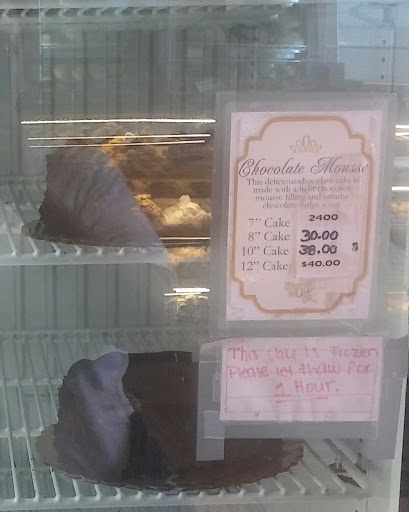 Chocolate Mousse
This delicious chocolate cake is
made with a light chocolate
mousse filling and creamy
chocolate fudge icing
7" Cake 2400
8" Cake 30.00
10" Cake 38.00 $
12" Cake $40.00
This cake is Frozen
Please let thaw for
1 Hour.